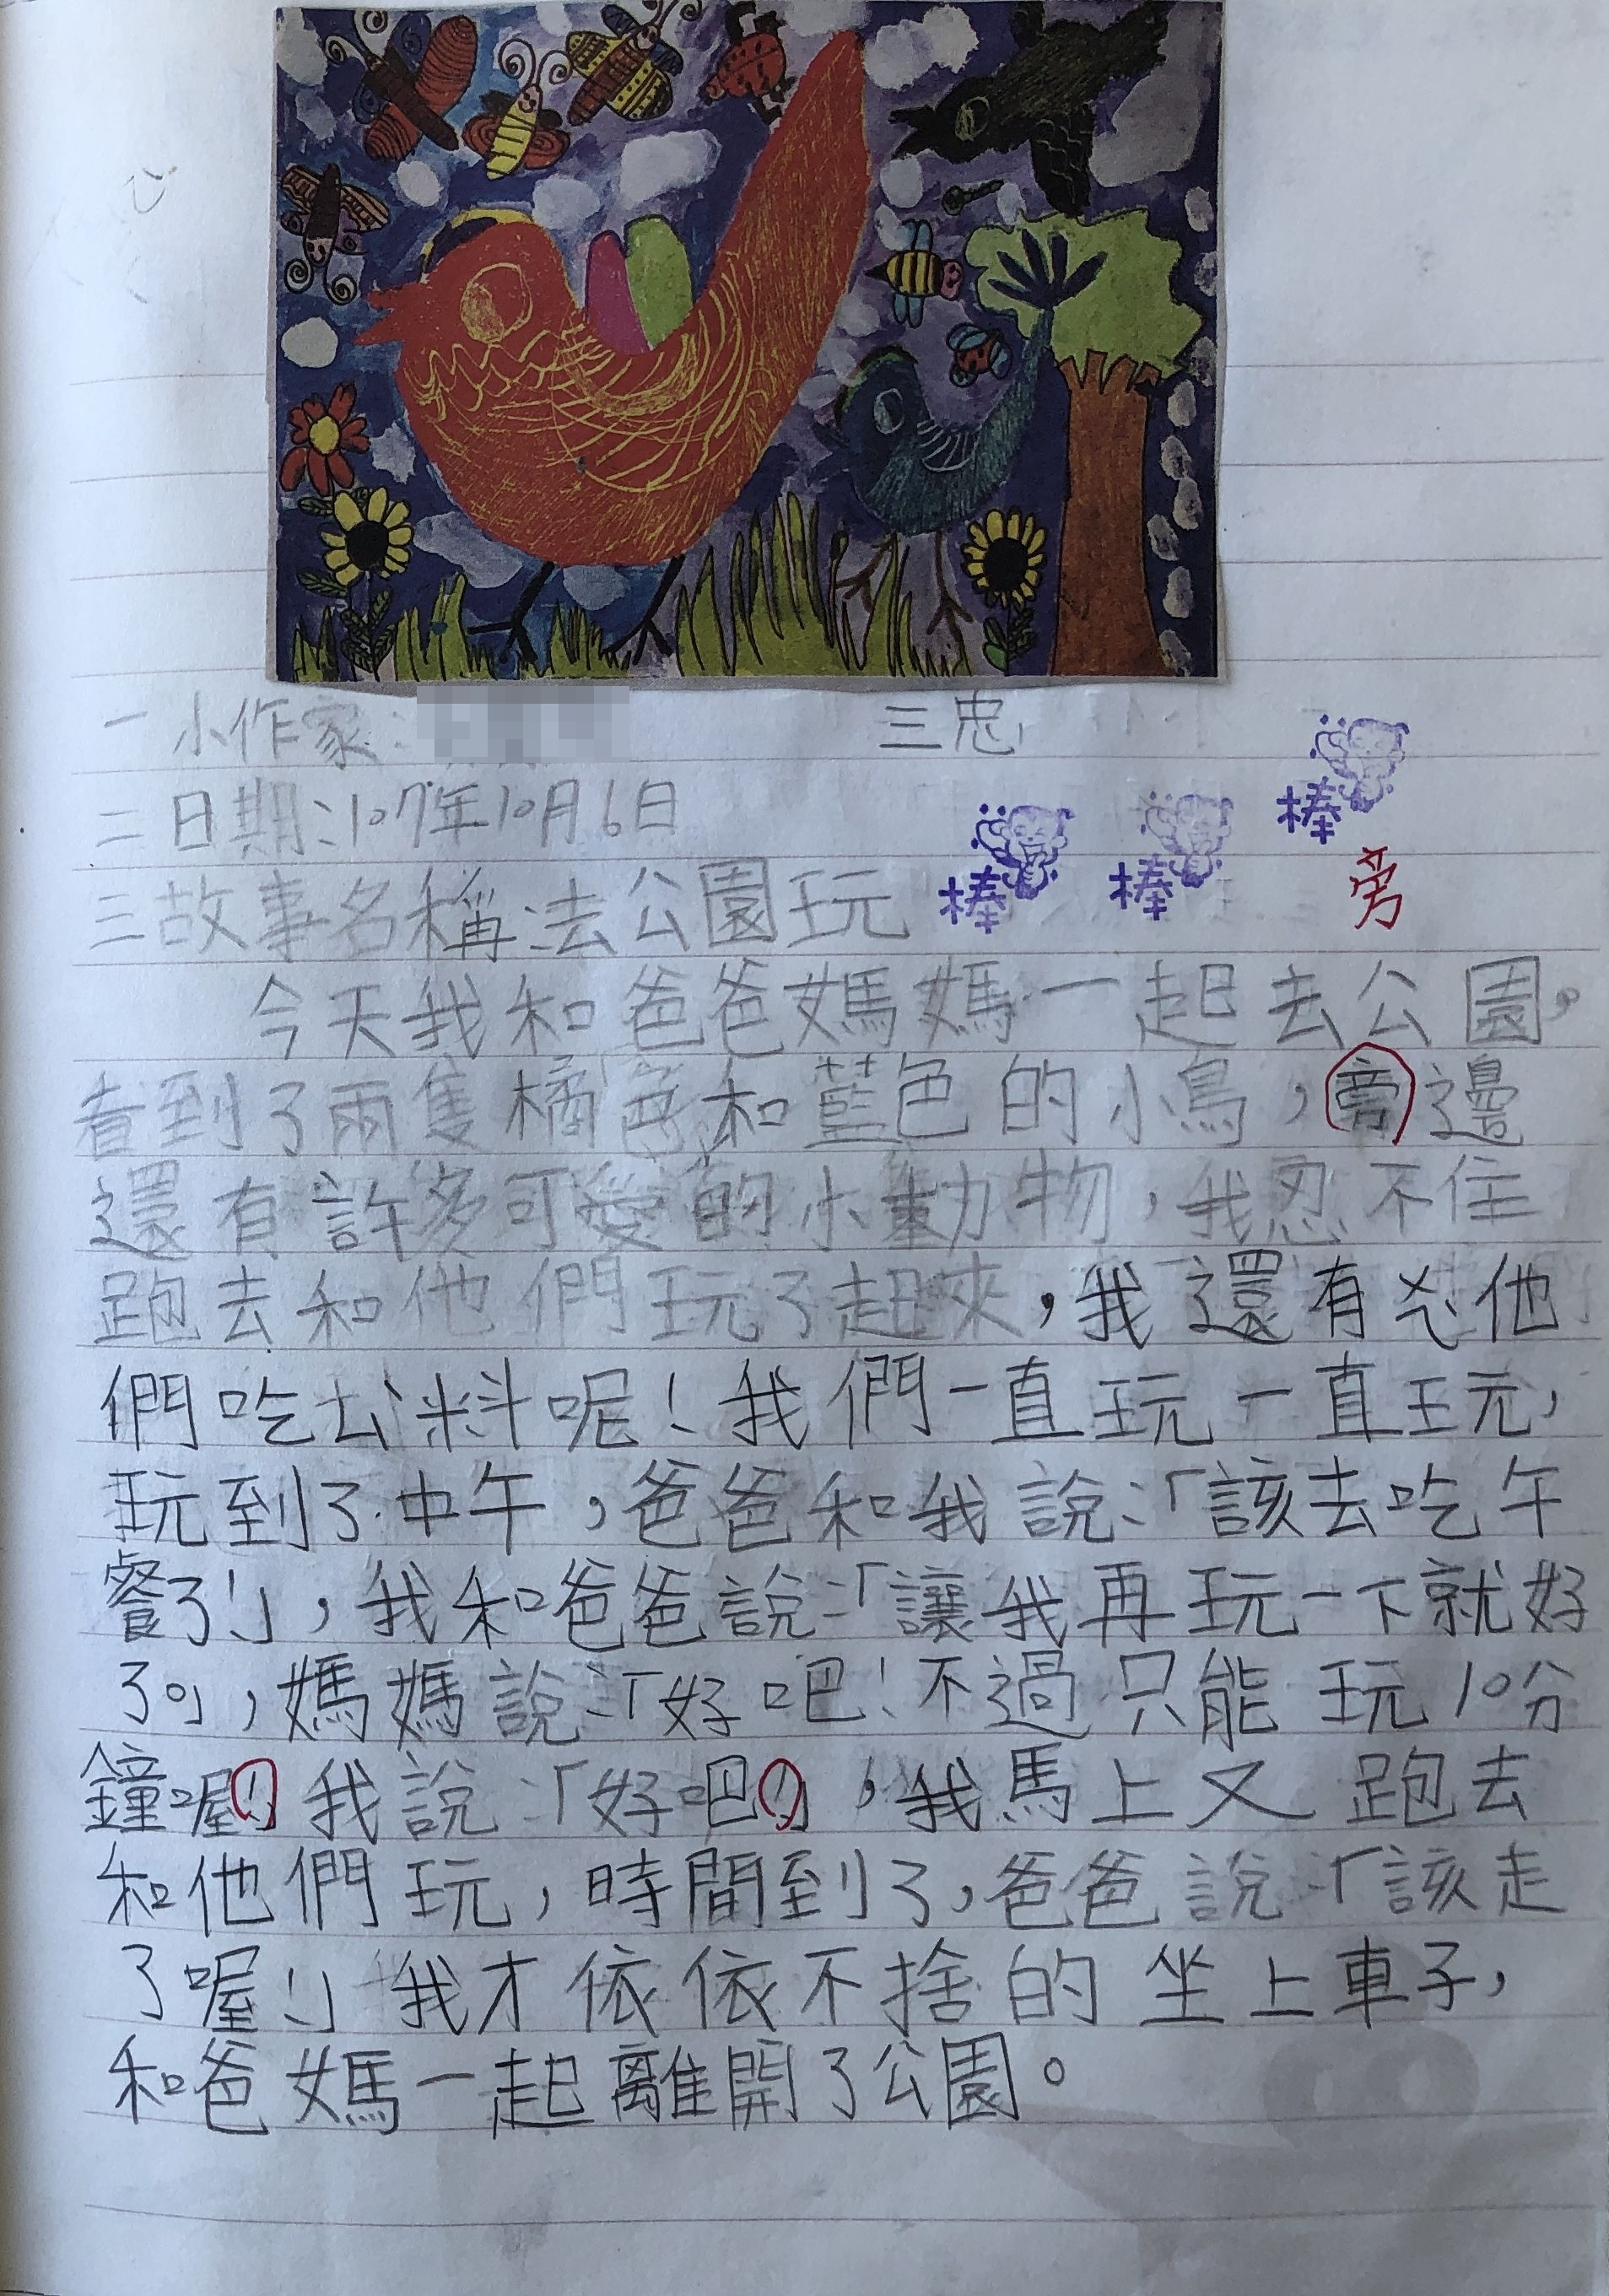 一小作家:
三忠
二日期:107年10月6日
棒 棒 棒
旁
三故事名稱:去公園玩
今天我和爸爸媽媽一起去公園,
看到了兩隻橘色和藍色的小鳥,旁邊
還有許多可愛的小動物,我忍不住
跑去和他們玩了起來,我還有ㄨㄟˋ他
們吃ㄙˋ料呢!我們一直玩一直玩,
玩到了中午,爸爸和我說:「該去吃午
餐了!」,我和爸爸說:「讓我再玩一下就好
了。」,媽媽說:「好吧!不過只能玩10分
鐘喔!」我說:「好吧!」,我馬上又跑去
和他們玩,時間到了,爸爸說:「該走
了喔!」我才依依不捨的坐上車子,
和爸媽一起離開了公園。